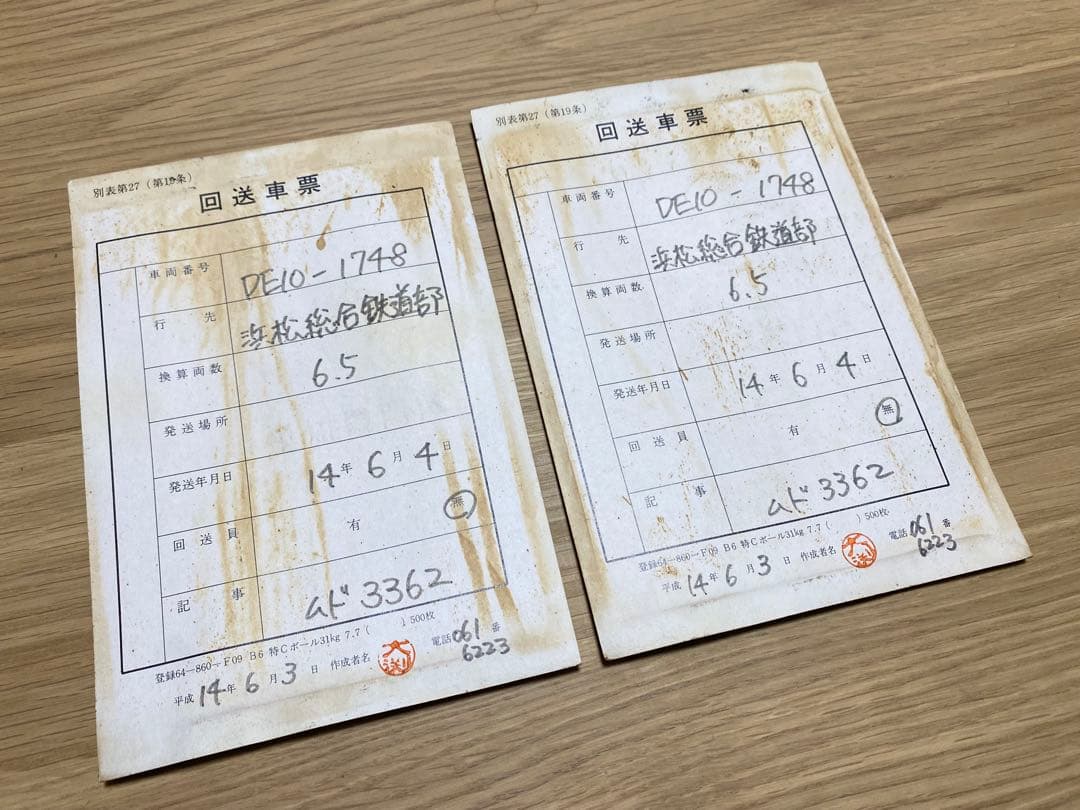 別表第27(第19条)
回送車票
車両番号 DE10-1748
行先 浜松総合鉄道部
換算両数 6.5
発送場所
発送年月日 14年6月4日
回送員 有 無
記事 ムド3362
登録64-860-F09 B6 特Cボール31kg 7.7( )500枚
平成14年6月3日 作成者名 電話061番
6223
別表第27(第19条)
回送車票
車両番号 DE10-1748
行先 浜松総合鉄道部
換算両数 6.5
発送場所
発送年月日 14年6月4日
回送員 有 無
記事 ムド3362
登録64-860-F09 B6 特Cボール31kg 7.7( )500枚
平成14年6月3日 作成者名 電話061番
6223